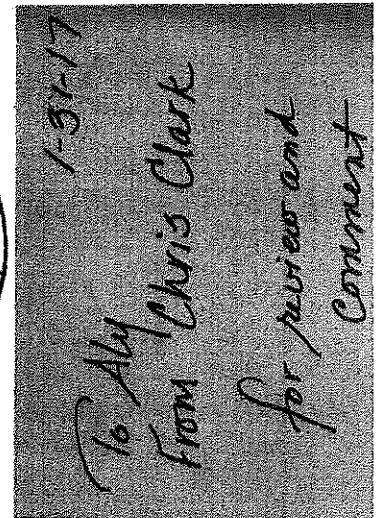 1-31-17
To Aly
From Chris Clark
for review and
Comment